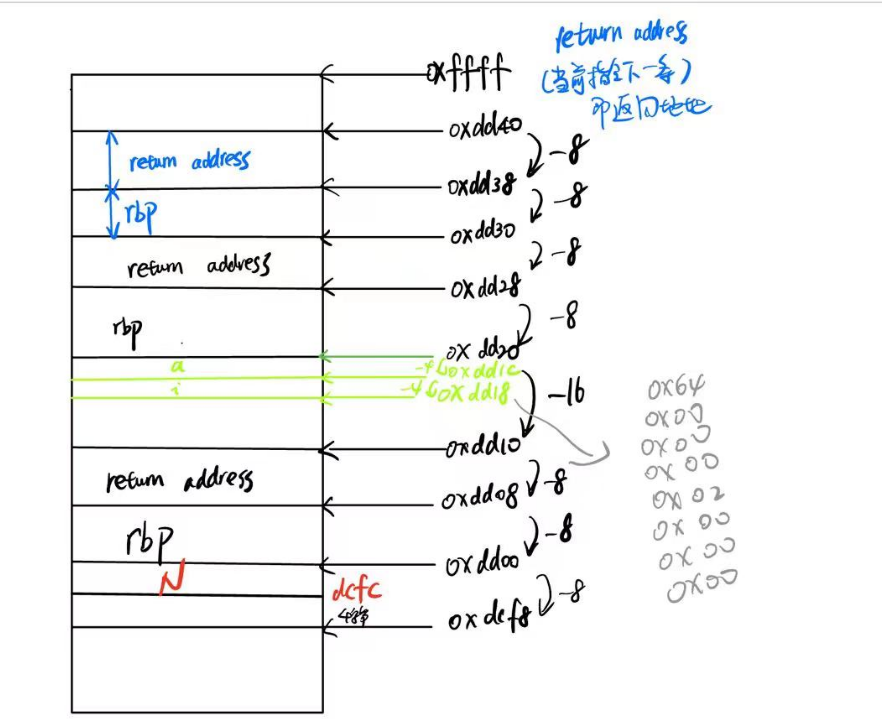 return address
(当前指令下一条)
即返回地址
0xffff
0xdd40
-8
return address
0xdd38
-8
rbp
0xdd30
-8
return address
0xdd28
-8
rbp
0xdd20
a
-4
0xdd1c
i
-4
0xdd18
-16
0xdd10
-8
return address
0xdd08
-8
rbp
0xdd00
-8
N
dcfc
0xdcf8
0x64
0x00
0x00
0x00
0x02
0x00
0x00
0x00